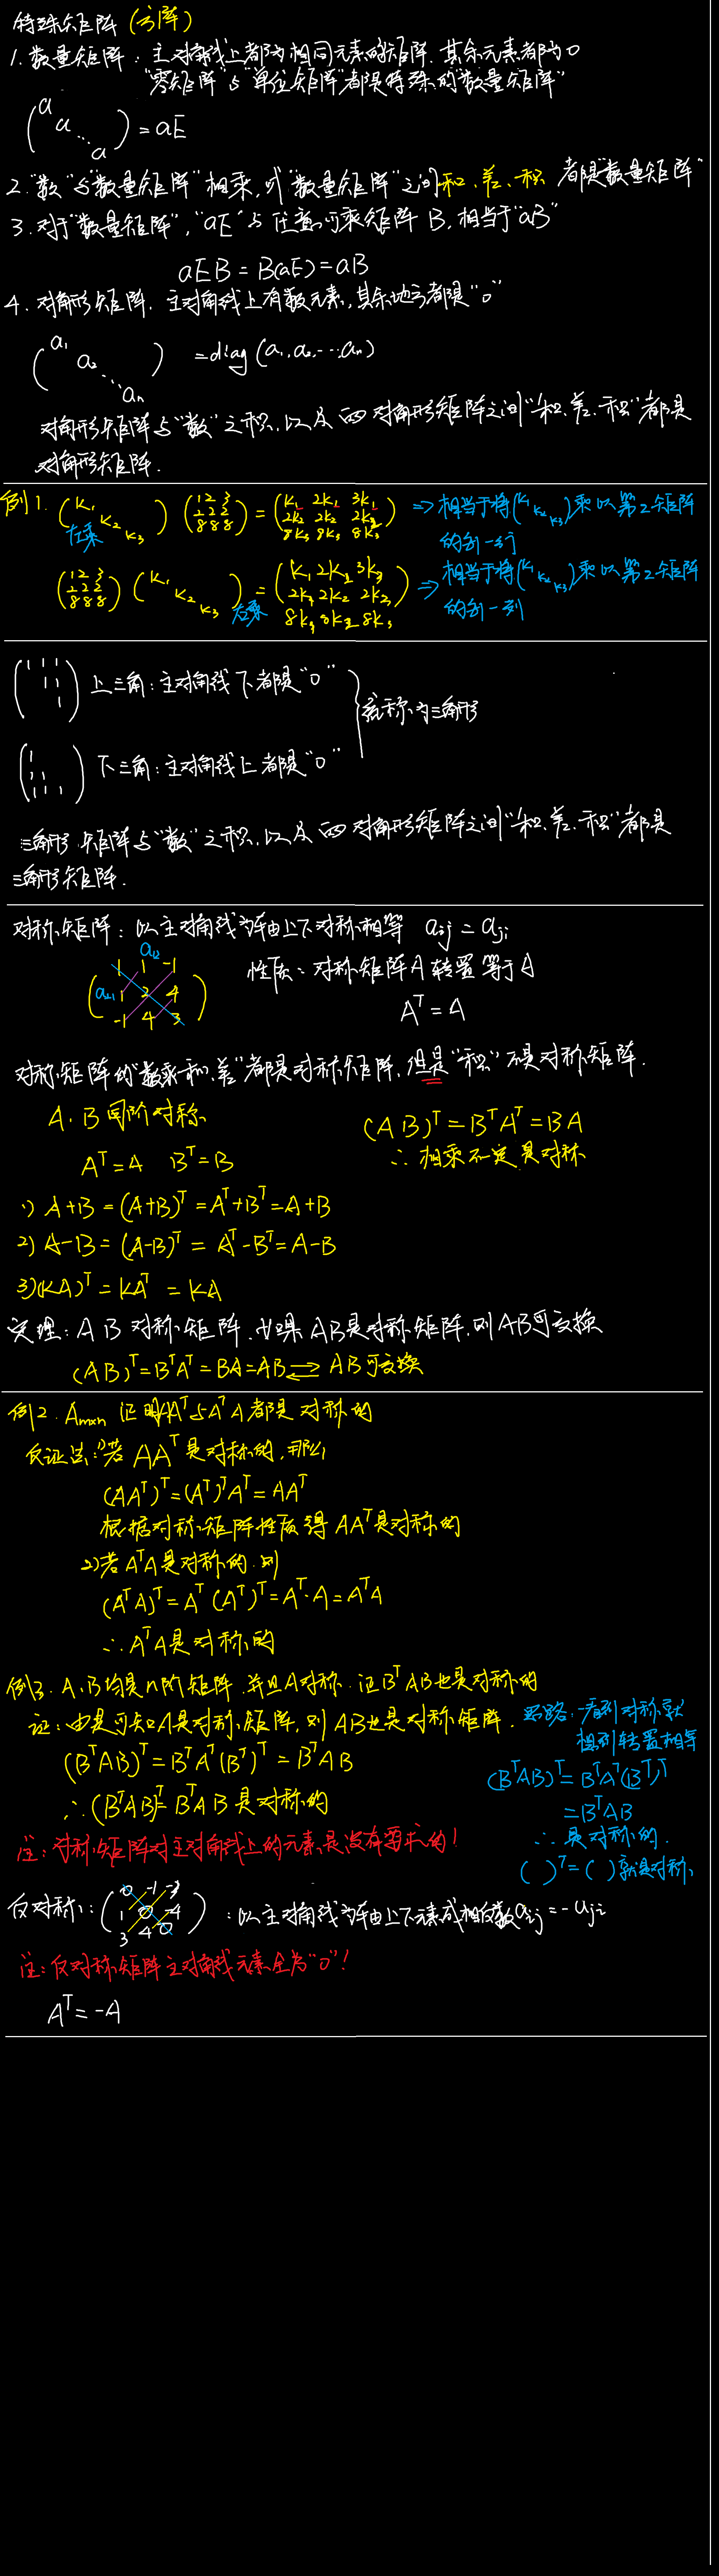 特殊矩阵 (方阵)
1. 数量矩阵：主对角线上都为相同元素的矩阵. 其余元素都为0
"零矩阵"与"单位矩阵"都是特殊的"数量矩阵"
(a a ⋱ a) = aE
2. "数"与"数量矩阵"相乘, 或"数量矩阵"之间和、差、积 都是"数量矩阵"
3. 对于"数量矩阵", "aE"与任意可乘矩阵 B, 相当于"aB"
aEB = B(aE) = aB
4. 对角形矩阵. 主对角线上有数元素, 其余地方都是"0"
(a₁ a₂ ⋱ aₙ) = diag (a₁, a₂, … aₙ)
对角形矩阵与"数"之积, 以及 两 对角形矩阵之间"和、差、积"都是
对角形矩阵.
例1. (K₁ K₂ K₃) (1 2 3 / 2 2 2 / 8 8 8) = (K₁ 2K₁ 3K₁ / 2K₂ 2K₂ 2K₂ / 8K₃ 8K₃ 8K₃) ⇒ 相当于将(K₁ K₂ K₃)乘以第2矩阵
左乘
的每一行
(1 2 3 / 2 2 2 / 8 8 8) (K₁ K₂ K₃) 右乘 = (K₁ 2K₂ 3K₃ / 2K₁ 2K₂ 2K₃ / 8K₁ 8K₂ 8K₃) ⇒ 相当于将(K₁ K₂ K₃)乘以第2矩阵
的每一列
(1 1 1 / 1 1 / 1) 上三角：主对角线下都是"0"
统称为三角形
(1 / 1 1 / 1 1 1) 下三角：主对角线上都是"0"
三角形 矩阵与"数"之积, 以及 两 对角形矩阵之间"和、差、积"都是
三角形矩阵.
对称矩阵：以主对角线为轴由上下对称相等 aij = aji
a₁₂
(1 1 -1 / 1 2 4 / -1 4 3)
a₂₁
性质：对称矩阵A转置等于A
Aᵀ = A
对称矩阵的"数乘和、差"都是对称矩阵, 但是"积"不是对称矩阵.
A、B 同阶对称
Aᵀ = A Bᵀ = B
(AB)ᵀ = BᵀAᵀ = BA
∴ 相乘不一定是对称
1) A+B = (A+B)ᵀ = Aᵀ+Bᵀ = A+B
2) A-B = (A-B)ᵀ = Aᵀ-Bᵀ = A-B
3) (KA)ᵀ = KAᵀ = KA
定理：A B 对称矩阵, 如果AB是对称矩阵, 则AB可交换
(AB)ᵀ = BᵀAᵀ = BA = AB ⇌ AB可交换
例2. Amxn 证明AAᵀ与AᵀA都是对称的
反证法：1)若 AAᵀ 是对称的, 那么
(AAᵀ)ᵀ = (Aᵀ)ᵀAᵀ = AAᵀ
根据对称矩阵性质得 AAᵀ是对称的
2)若AᵀA是对称的. 则
(AᵀA)ᵀ = Aᵀ(Aᵀ)ᵀ = Aᵀ·A = AᵀA
∴ AᵀA是对称的
例3. A、B均是n阶矩阵, 并且A对称. 证BᵀAB也是对称的
证：由是可知A是对称矩阵, 则AB也是对称矩阵.
(BᵀAB)ᵀ = BᵀAᵀ(Bᵀ)ᵀ = BᵀAB
∴ (BᵀAB)ᵀ = BᵀAB 是对称的
思路：一看到对称就
想到转置相等
(BᵀAB)ᵀ = BᵀAᵀ(Bᵀ)ᵀ
= BᵀAB
∴ 是对称的.
( )ᵀ = ( ) 就是对称.
注：对称矩阵对主对角线上的元素是没有要求的!
反对称：(0 -1 -3 / 1 0 -4 / 3 4 0)：以主对角线为轴由上下元素成相反数aij = -aji
注：反对称矩阵主对角线元素全为"0"!
Aᵀ = -A